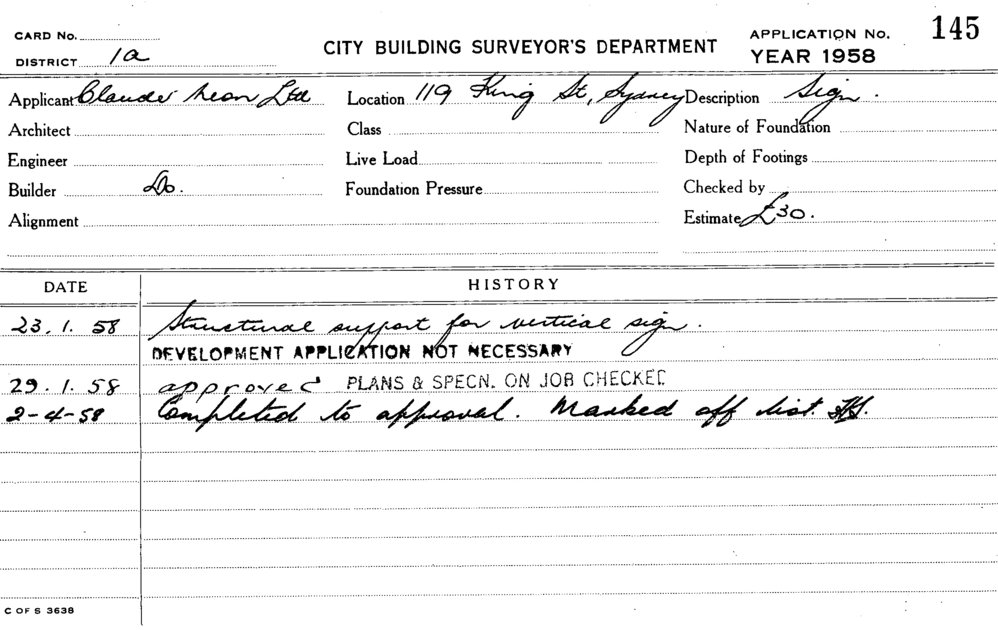 CARD No.
DISTRICT 1a
CITY BUILDING SURVEYOR'S DEPARTMENT
APPLICATION No. 145
YEAR 1958
Applicant Claude Neon Ltd Location 119 King St, Sydney Description Sign.
Architect Class Nature of Foundation
Engineer Live Load Depth of Footings
Builder Do. Foundation Pressure Checked by
Alignment Estimate £30.
DATE HISTORY
23.1.58 Structural support for vertical sign.
DEVELOPMENT APPLICATION NOT NECESSARY
29.1.58 approved PLANS & SPECN. ON JOB CHECKED
2-4-58 Completed to approval. Marked off list.
C OF S 3638